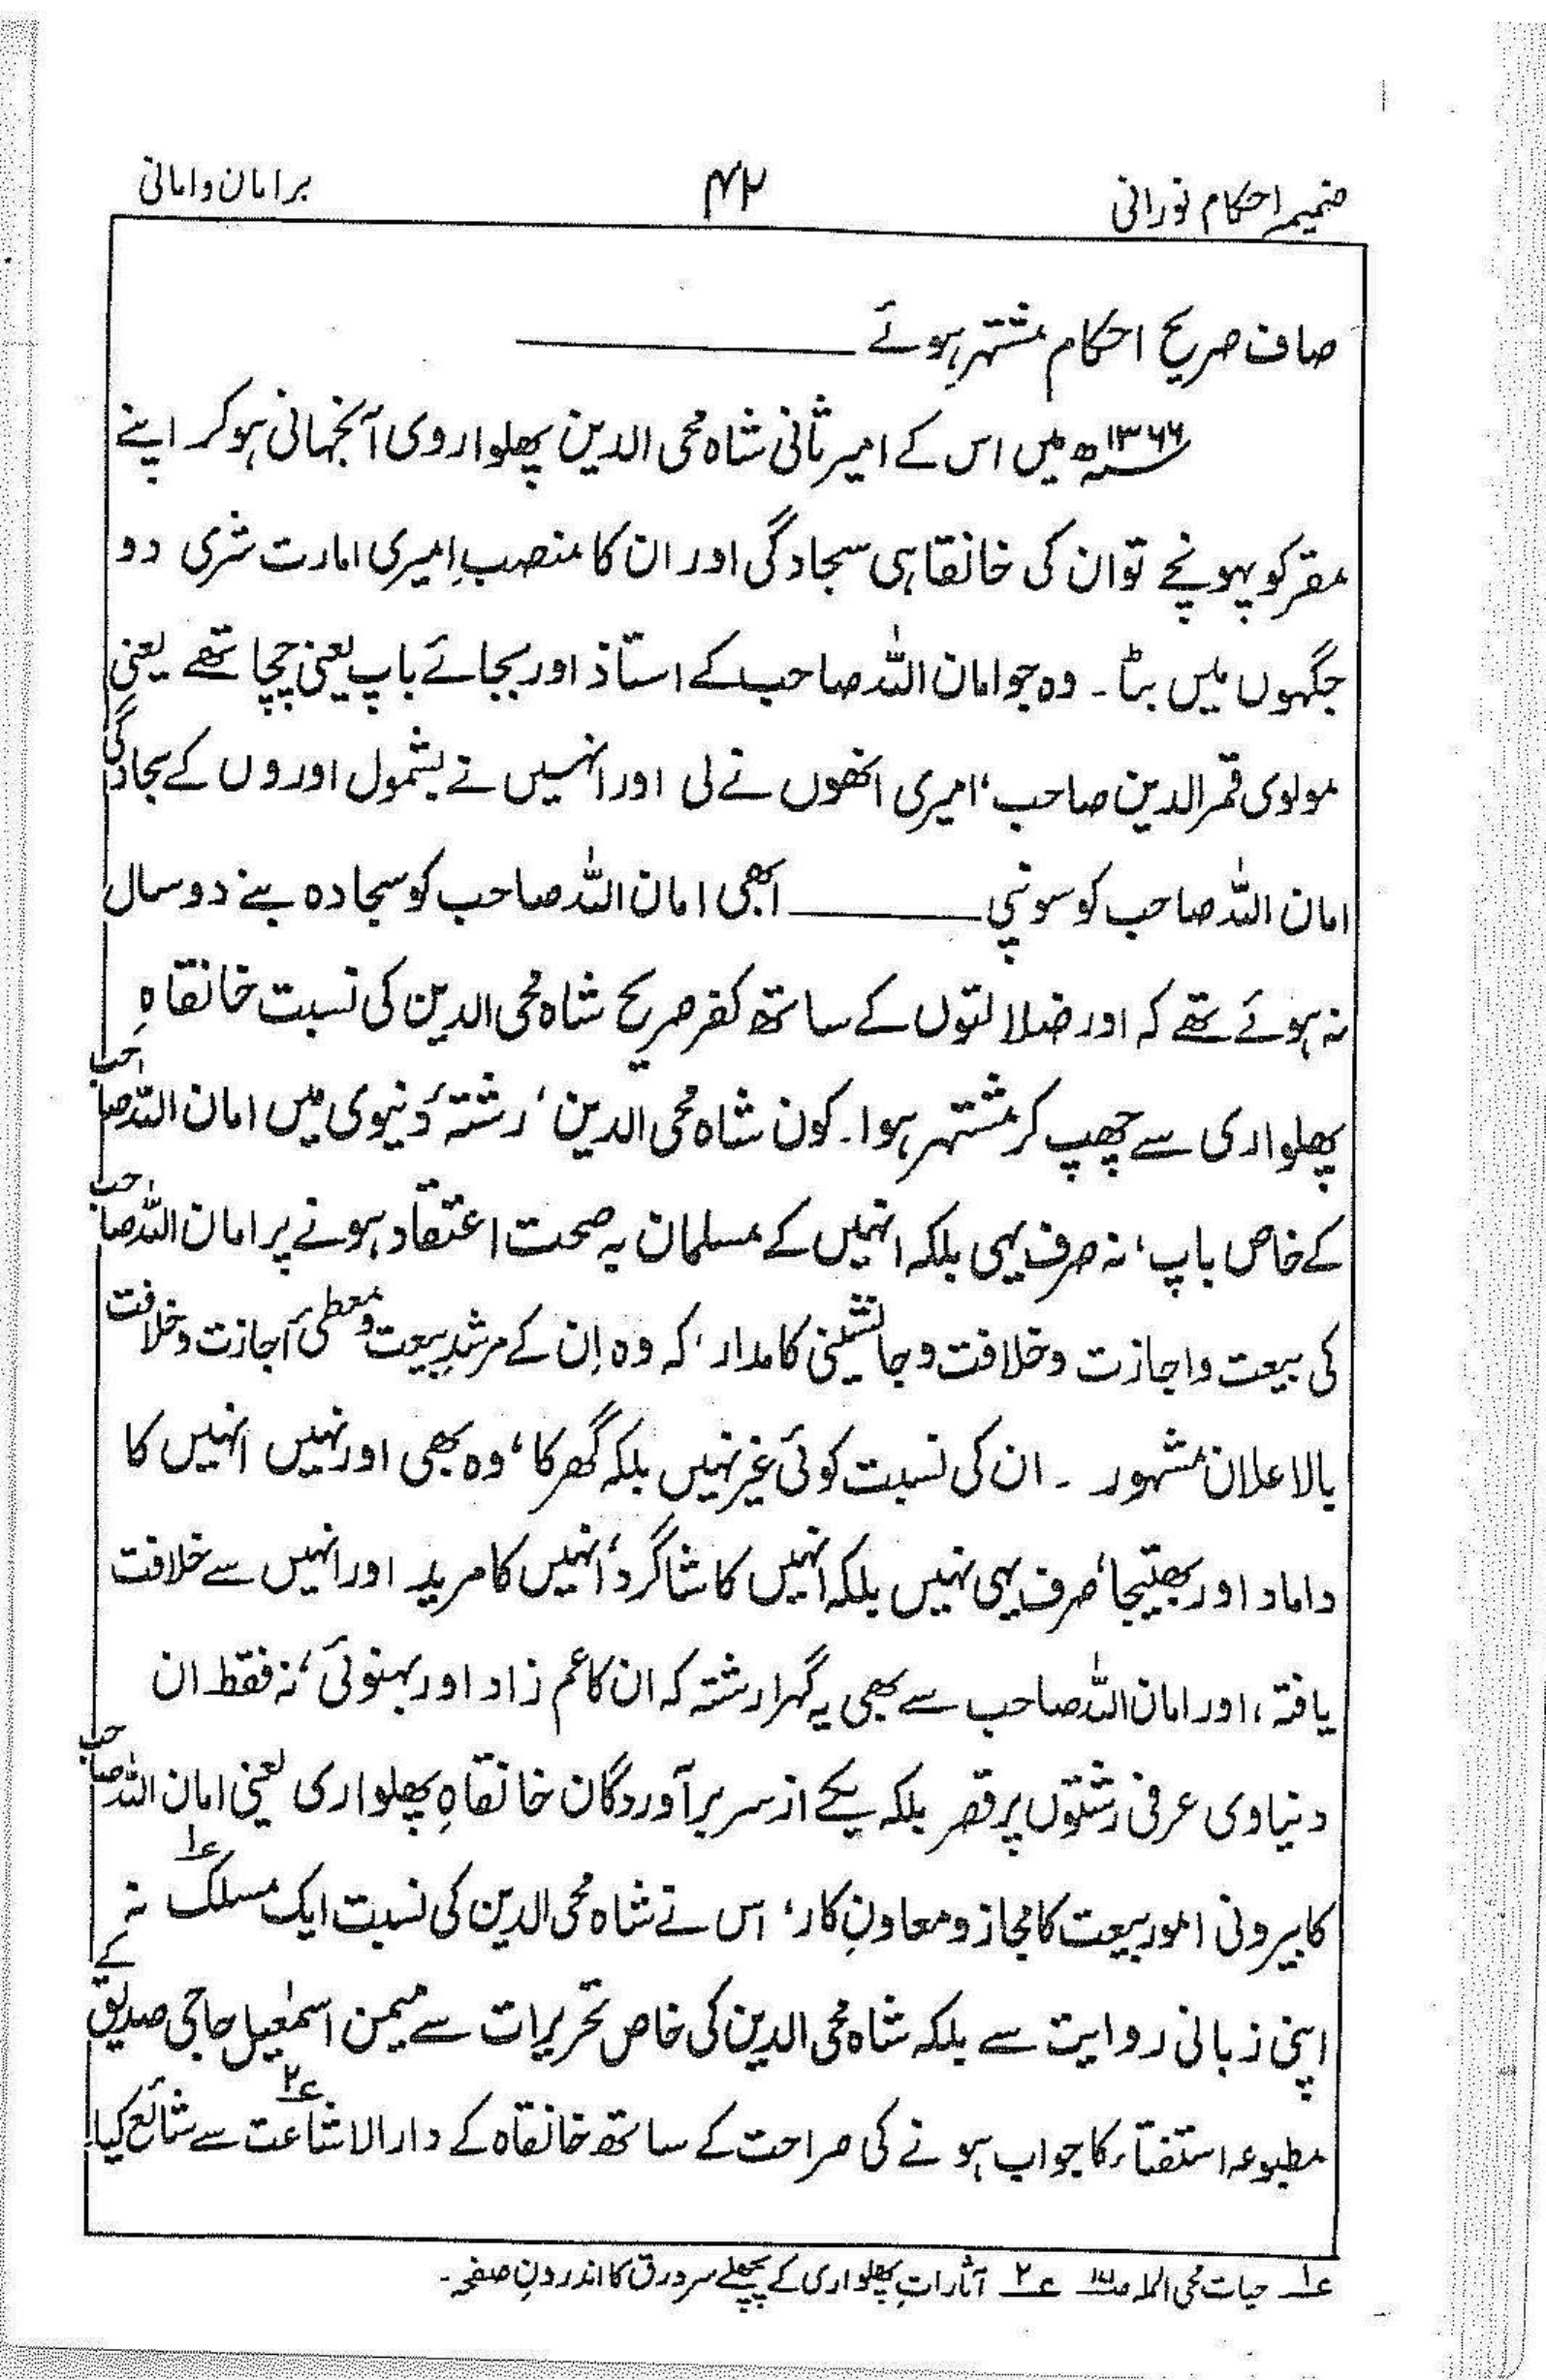 ضمیمہ احکام نورانی
۴۲
بر امان و امانی
صاف صریح احکام مشتہر ہوئے ـــــــــ
۱۳۶۶ھ میں اس کے امیر ثانی شاہ محی الدین پھلواروی آنجہانی ہوکر اپنے
مقر کو پہونچے تو ان کی خانقاہی سجادگی اور ان کا منصبِ امیری امارت شرعی دو
جگہوں میں بٹا۔ وہ جو امان اللہ صاحب کے استاذ اور بجائے باپ یعنی چچا تھے یعنی
مولوی قمر الدین صاحب، امیری انھوں نے لی اور انہیں نے بشمول اوروں کے سجادگی
امان اللہ صاحب کو سونپی ـــــــــ ابھی امان اللہ صاحب کو سجادہ بنے دو سال
نہ ہوئے تھے کہ اور ضلالتوں کے ساتھ کفر صریح شاہ محی الدین کی نسبت خانقاہِ
پھلواری سے چھپ کر مشتہر ہوا۔ کون شاہ محی الدین، رشتۂ دنیوی میں امان اللہ صاحب
کے خاص باپ، نہ صرف یہی بلکہ انہیں کے مسلمان بہ صحت اعتقاد ہونے پر امان اللہ صاحب
کی بیعت و اجازت و خلافت و جانشینی کا مدار، کہ وہ اِن کے مرشدِ بیعت و معطیٔ اجازت و خلافت
بالاعلان مشہور ۔ ان کی نسبت کوئی غیر نہیں بلکہ گھر کا، وہ بھی اور نہیں انہیں کا
داماد اور بھتیجا، صرف یہی نہیں بلکہ انہیں کا شاگرد، انہیں کا مرید اور انہیں سے خلافت
یافتہ، اور امان اللہ صاحب سے بھی یہ گہرا رشتہ کہ ان کا عم زاد اور بہنوئی، نہ فقط ان
دنیاوی عرفی رشتوں پر قصر بلکہ یکے از سر بر آوردگان خانقاہِ پھلواری یعنی امان اللہ صاحب
کا بیرونی امور بیعت کا مجاز و معاونِ کار، اس نے شاہ محی الدین کی نسبت ایک مسلک ؏۱ نہ
اپنی زبانی روایت سے بلکہ شاہ محی الدین کی خاص تحریرات سے میمن اسمٰعیل حاجی صدیق کے
مطبوعہ استفتاء کا جواب ہونے کی صراحت کے ساتھ خانقاہ کے دار الاشاعت ؏۲ سے شائع کیا!
؏۱ حیات محی الملۃ ؏۲ آثاراتِ پھلواری کے پچھلے سرورق کا اندرونِ صفحہ۔